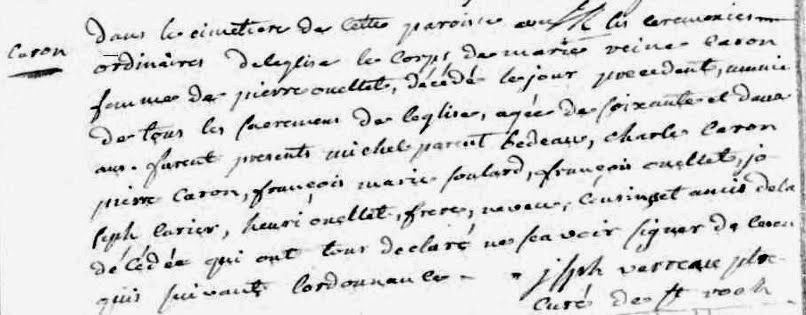 Caron
dans le cimetiere de cette paroisse avec les ceremonies
ordinaires de leglise le corps de marie reine Caron
femme de pierre ouellet, décédé le jour precedent, munie
de tous les sacremens de leglise, agée de soixante et deux
ans. furent presents michel parent bedeau, charle Caron
pierre Caron, françois marie soulard, françois ouellet, jo
seph Carier, henri ouellet, frere, neveu, Cousins et amis de la
décédée qui ont tous declaré ne scavoir signer de ce en
quis suivant lordonnance.
jsph verreau ptre
Curé de st roch